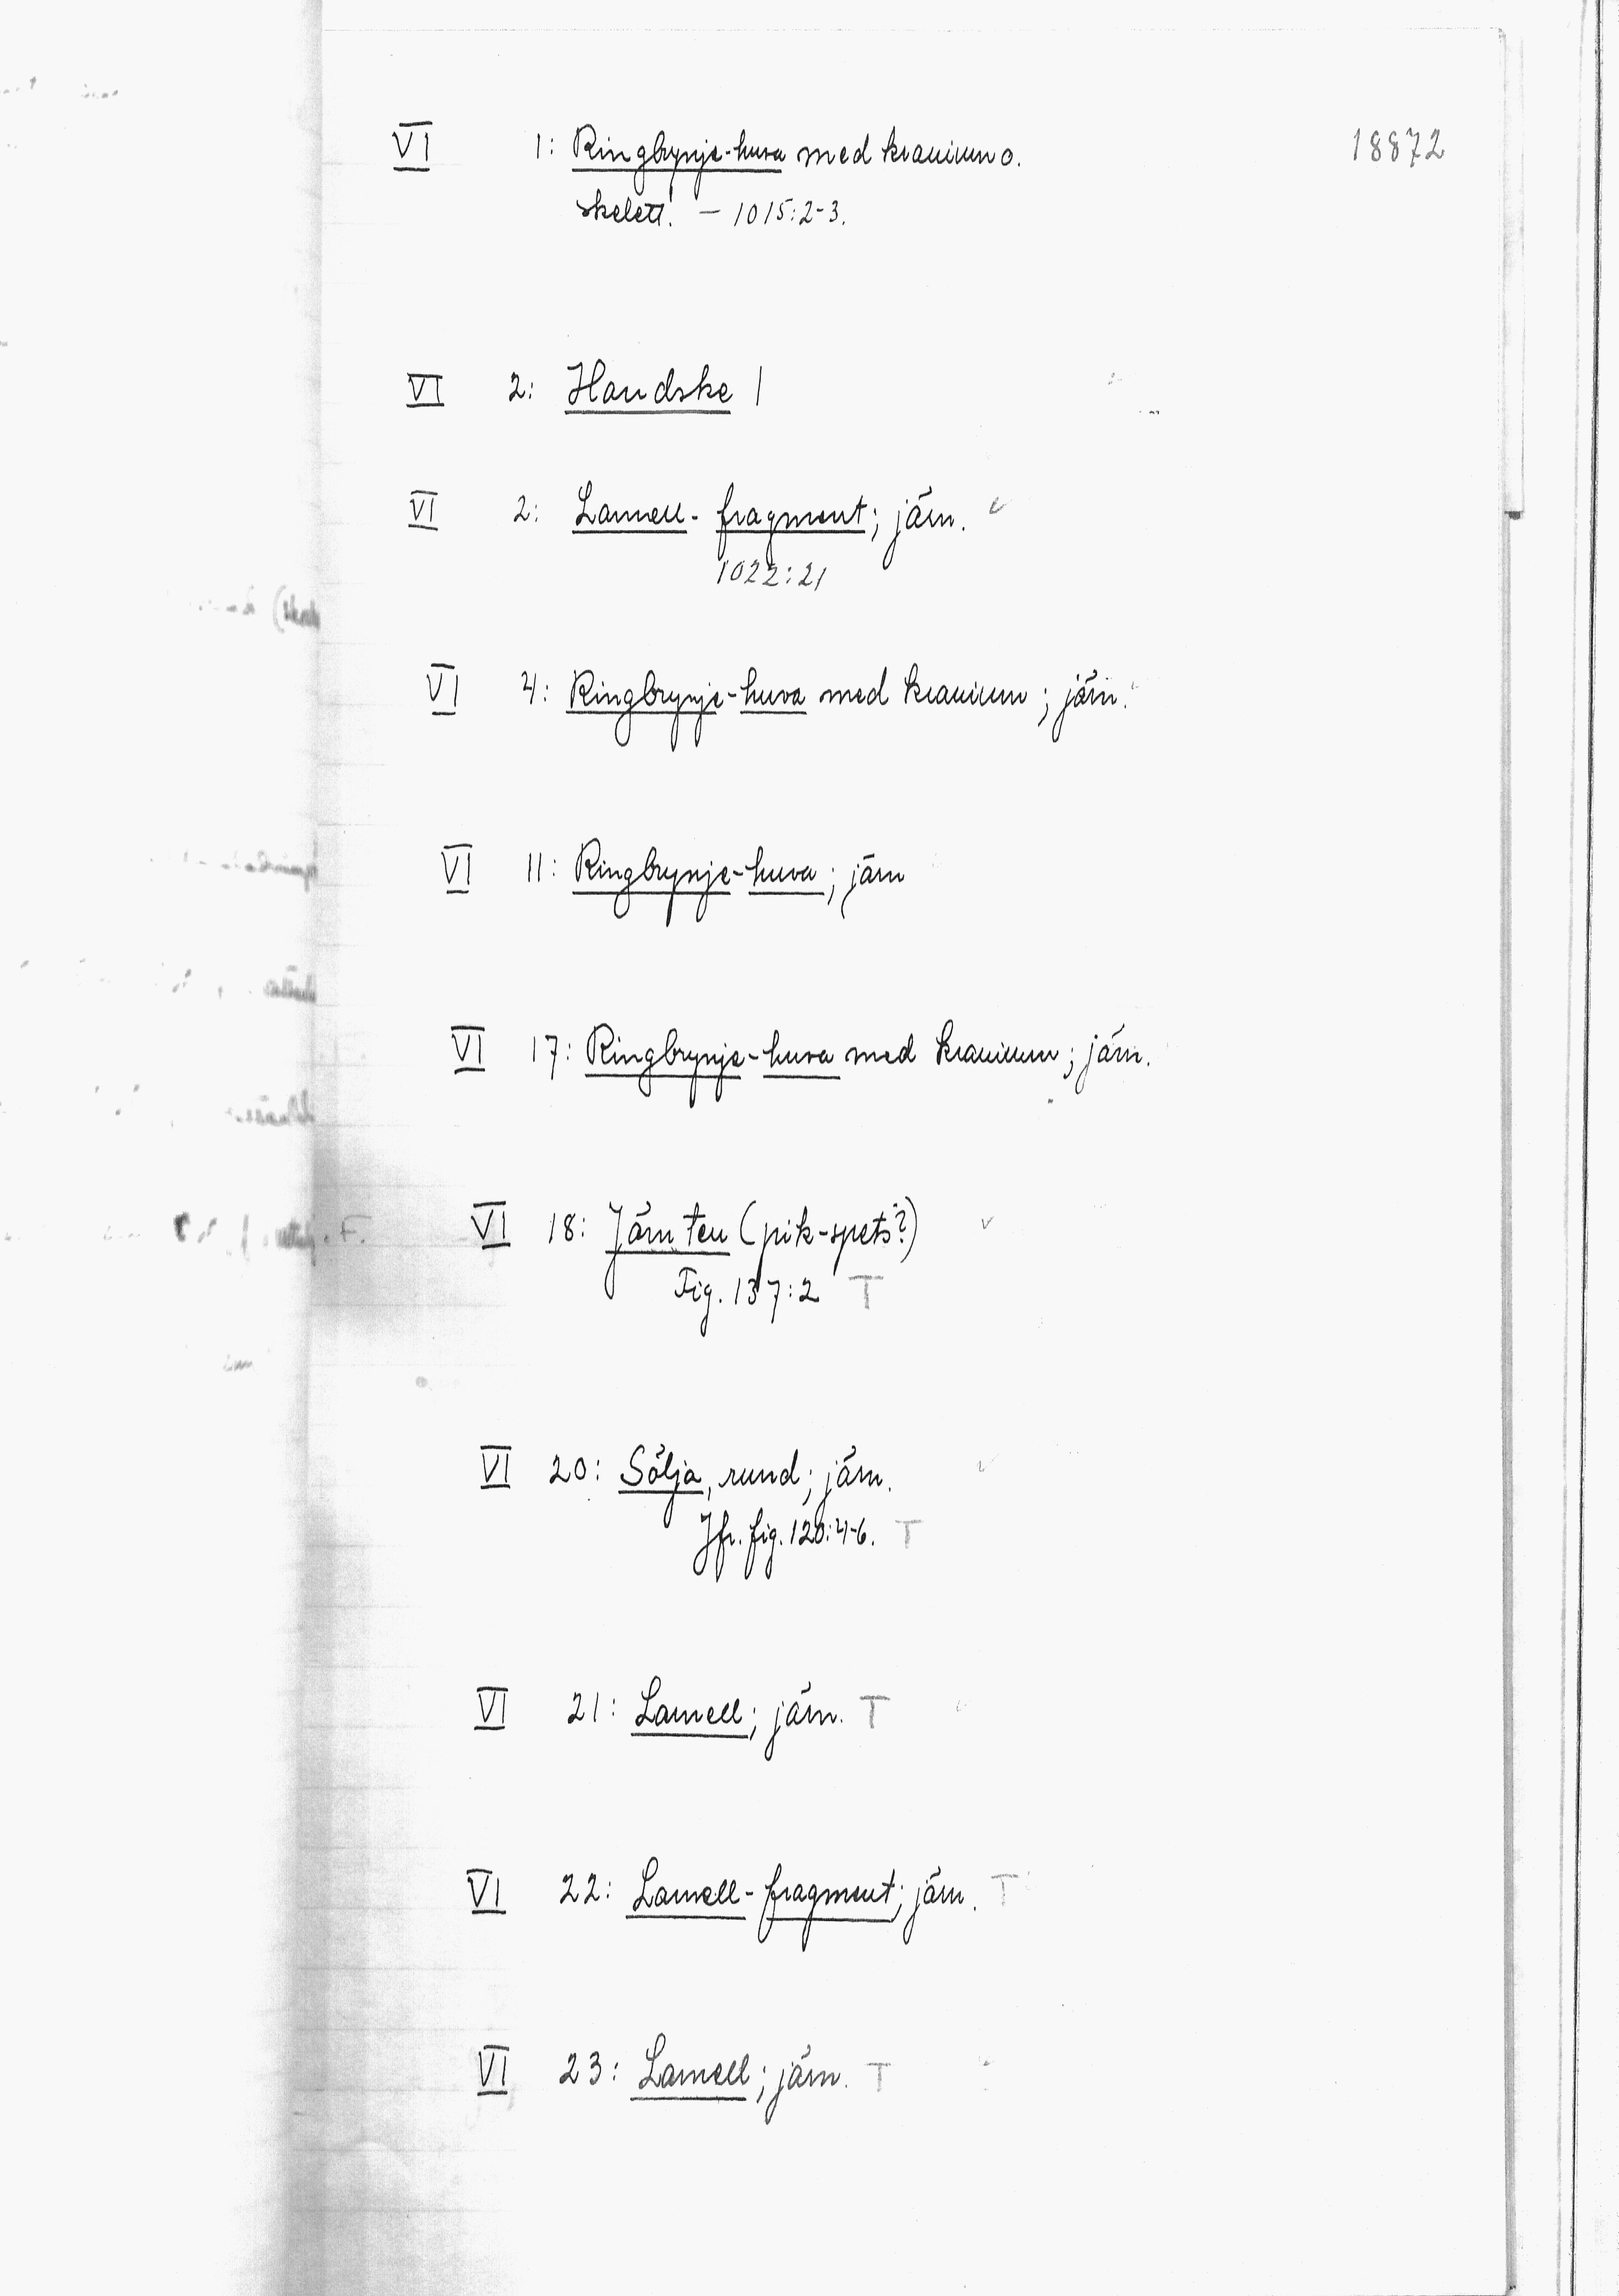 18872
VI 1: Ringbrynje-huva med kranium o.
skelett! – 1015:2-3.
VI 2: Handske 1
VI 2: Lamell-fragment; järn.
1022:21
VI 4: Ringbrynje-huva med kranium; järn.
VI 11: Ringbrynje-huva; järn
VI 17: Ringbrynje-huva med kranium; järn.
VI 18: Järnten (pik-spets?)
Fig. 137:2 T
VI 20: Sölja, rund; järn.
Jfr. fig. 120:4-6. T
VI 21: Lamell; järn. T
VI 22: Lamell-fragment; järn. T
VI 23: Lamell; järn. T